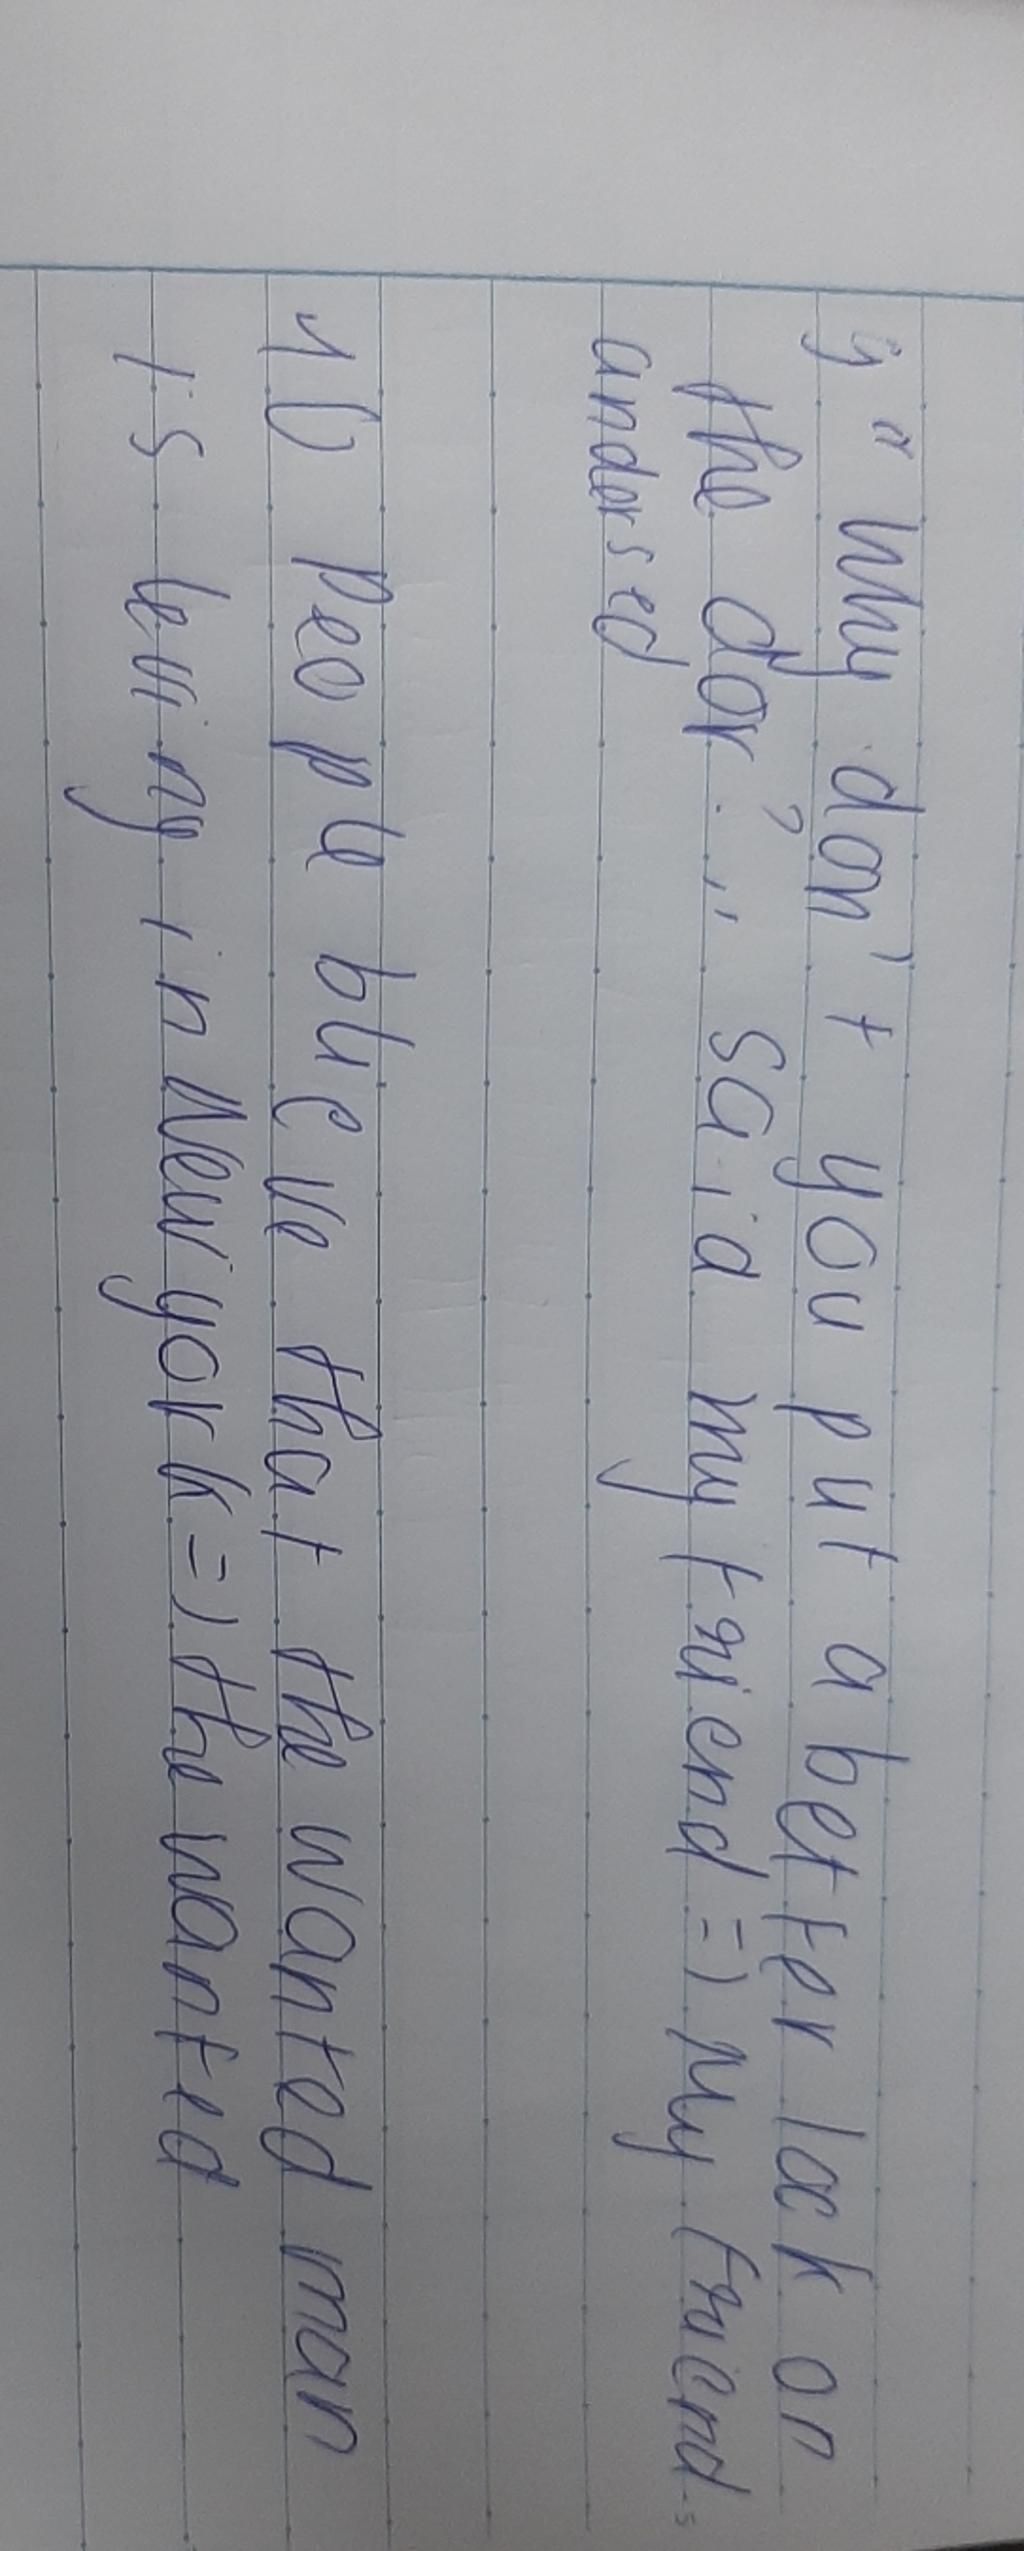 9 " Why don't you put a better lack on
the dor ? ,, said my friend => My friend
undersed
10 People blieve that the wanted man
is leving in New york => the wanted